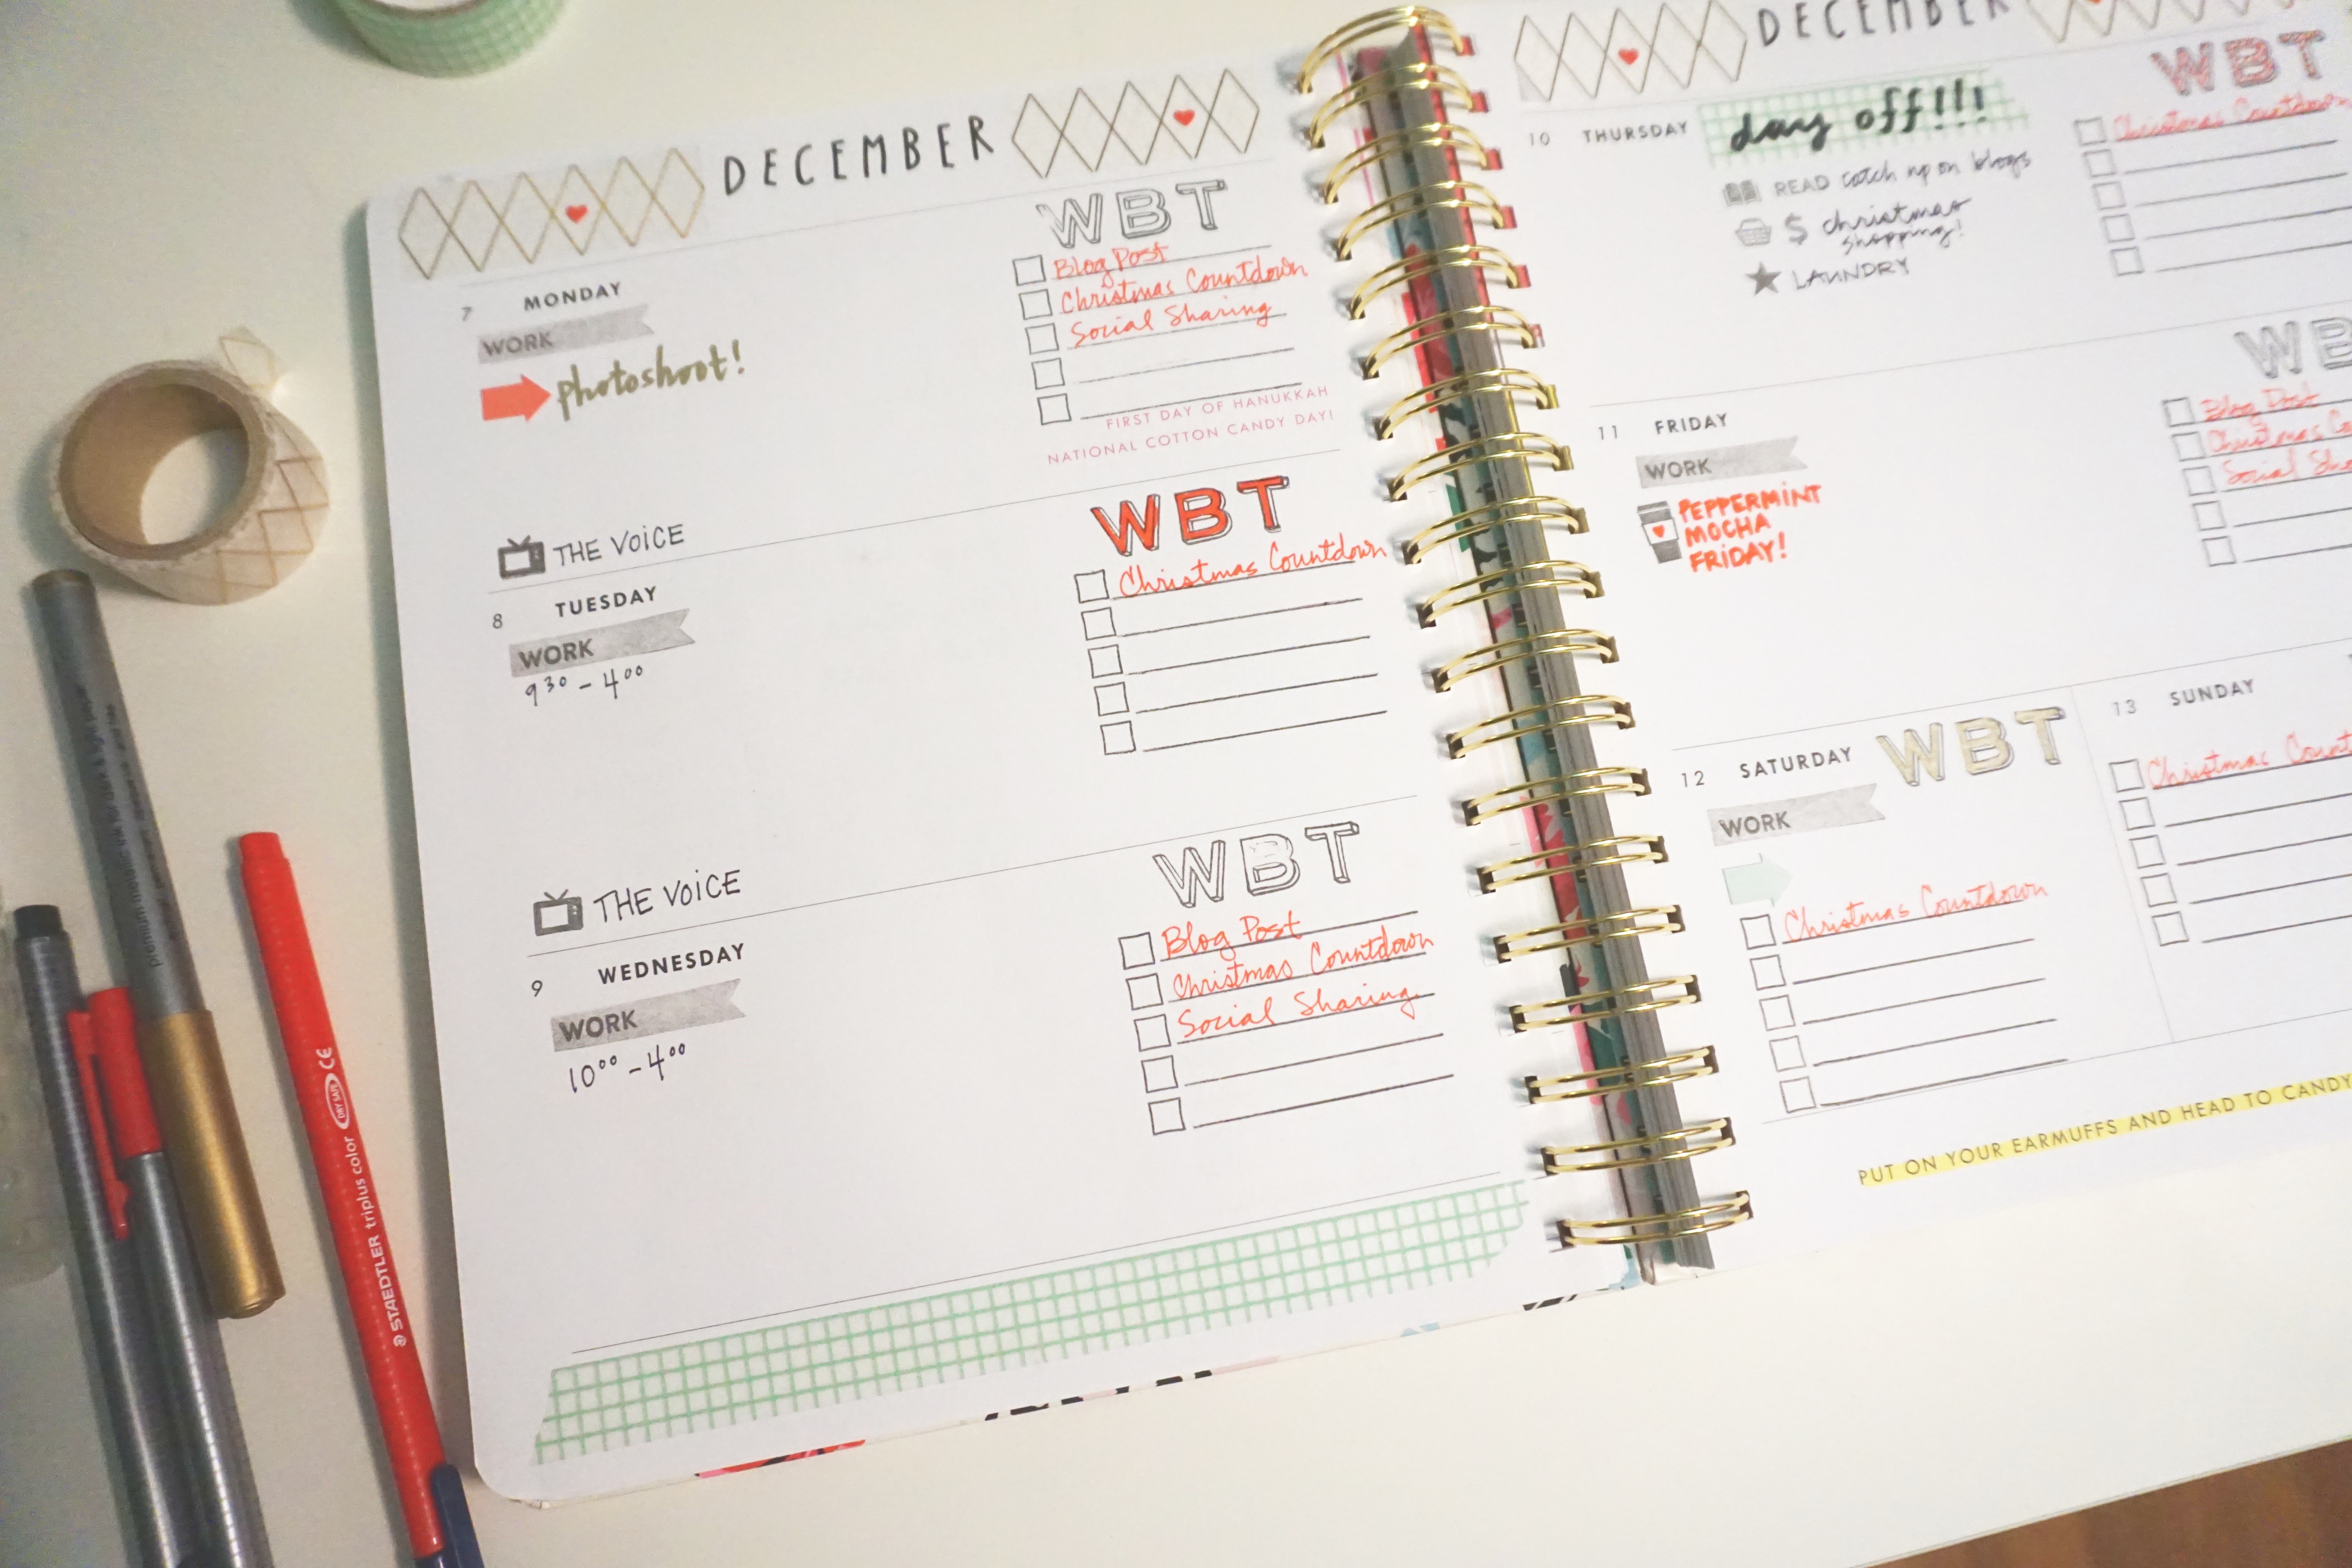 DECEMBER
7 MONDAY
WORK
photoshoot!
WBT
Blog Post
Christmas Countdown
Social Sharing
FIRST DAY OF HANUKKAH
NATIONAL COTTON CANDY DAY!
THE VOICE
8 TUESDAY
WORK
9³⁰ - 4⁰⁰
WBT
Christmas Countdown
THE VOICE
9 WEDNESDAY
WORK
10⁰⁰ - 4⁰⁰
WBT
Blog Post
Christmas Countdown
Social Sharing
DECEMBER
10 THURSDAY
day off!!!
READ catch up on blogs
$ christmas
shopping!
LAUNDRY
WBT
Christmas Countdown
11 FRIDAY
WORK
PEPPERMINT
MOCHA
FRIDAY!
WB
Blog Post
Christmas Co
Social Sha
12 SATURDAY
WBT
WORK
Christmas Countdown
13 SUNDAY
Christmas Count
PUT ON YOUR EARMUFFS AND HEAD TO CANDY
STAEDTLER triplus color DRY SAFE CE